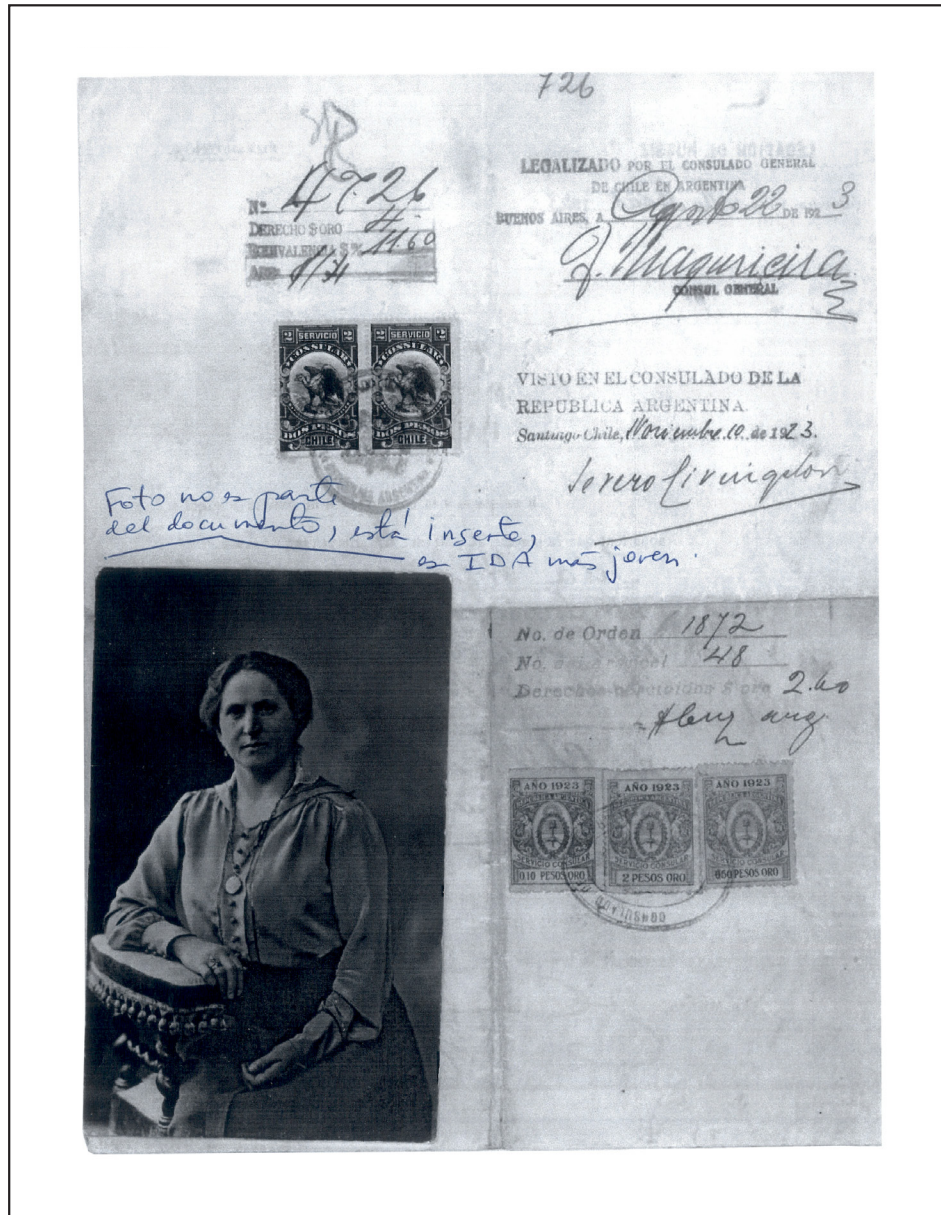 726
Nº 4726
DERECHO $ ORO 4
EQUIVALENCIA $ 11.60
LEGALIZADO POR EL CONSULADO GENERAL
DE CHILE EN ARGENTINA
BUENOS AIRES, A Agosto 22 DE 1923
CONSUL GENERAL
2 SERVICIO 2
CONSULAR
DOS PESOS
CHILE
2 SERVICIO 2
CONSULAR
DOS PESOS
CHILE
VISTO EN EL CONSULADO DE LA
REPUBLICA ARGENTINA.
Santiago Chile, Noviembre 10 de 1923.
Foto no es parte
del documento, está inserte,
es IDA más joven.
No. de Orden 1872
No. 48
Derechos 2.60
AÑO 1923
SERVICIO CONSULAR
0.10 PESOS ORO
AÑO 1923
SERVICIO CONSULAR
2 PESOS ORO
AÑO 1923
SERVICIO CONSULAR
PESOS ORO
CONSULADO